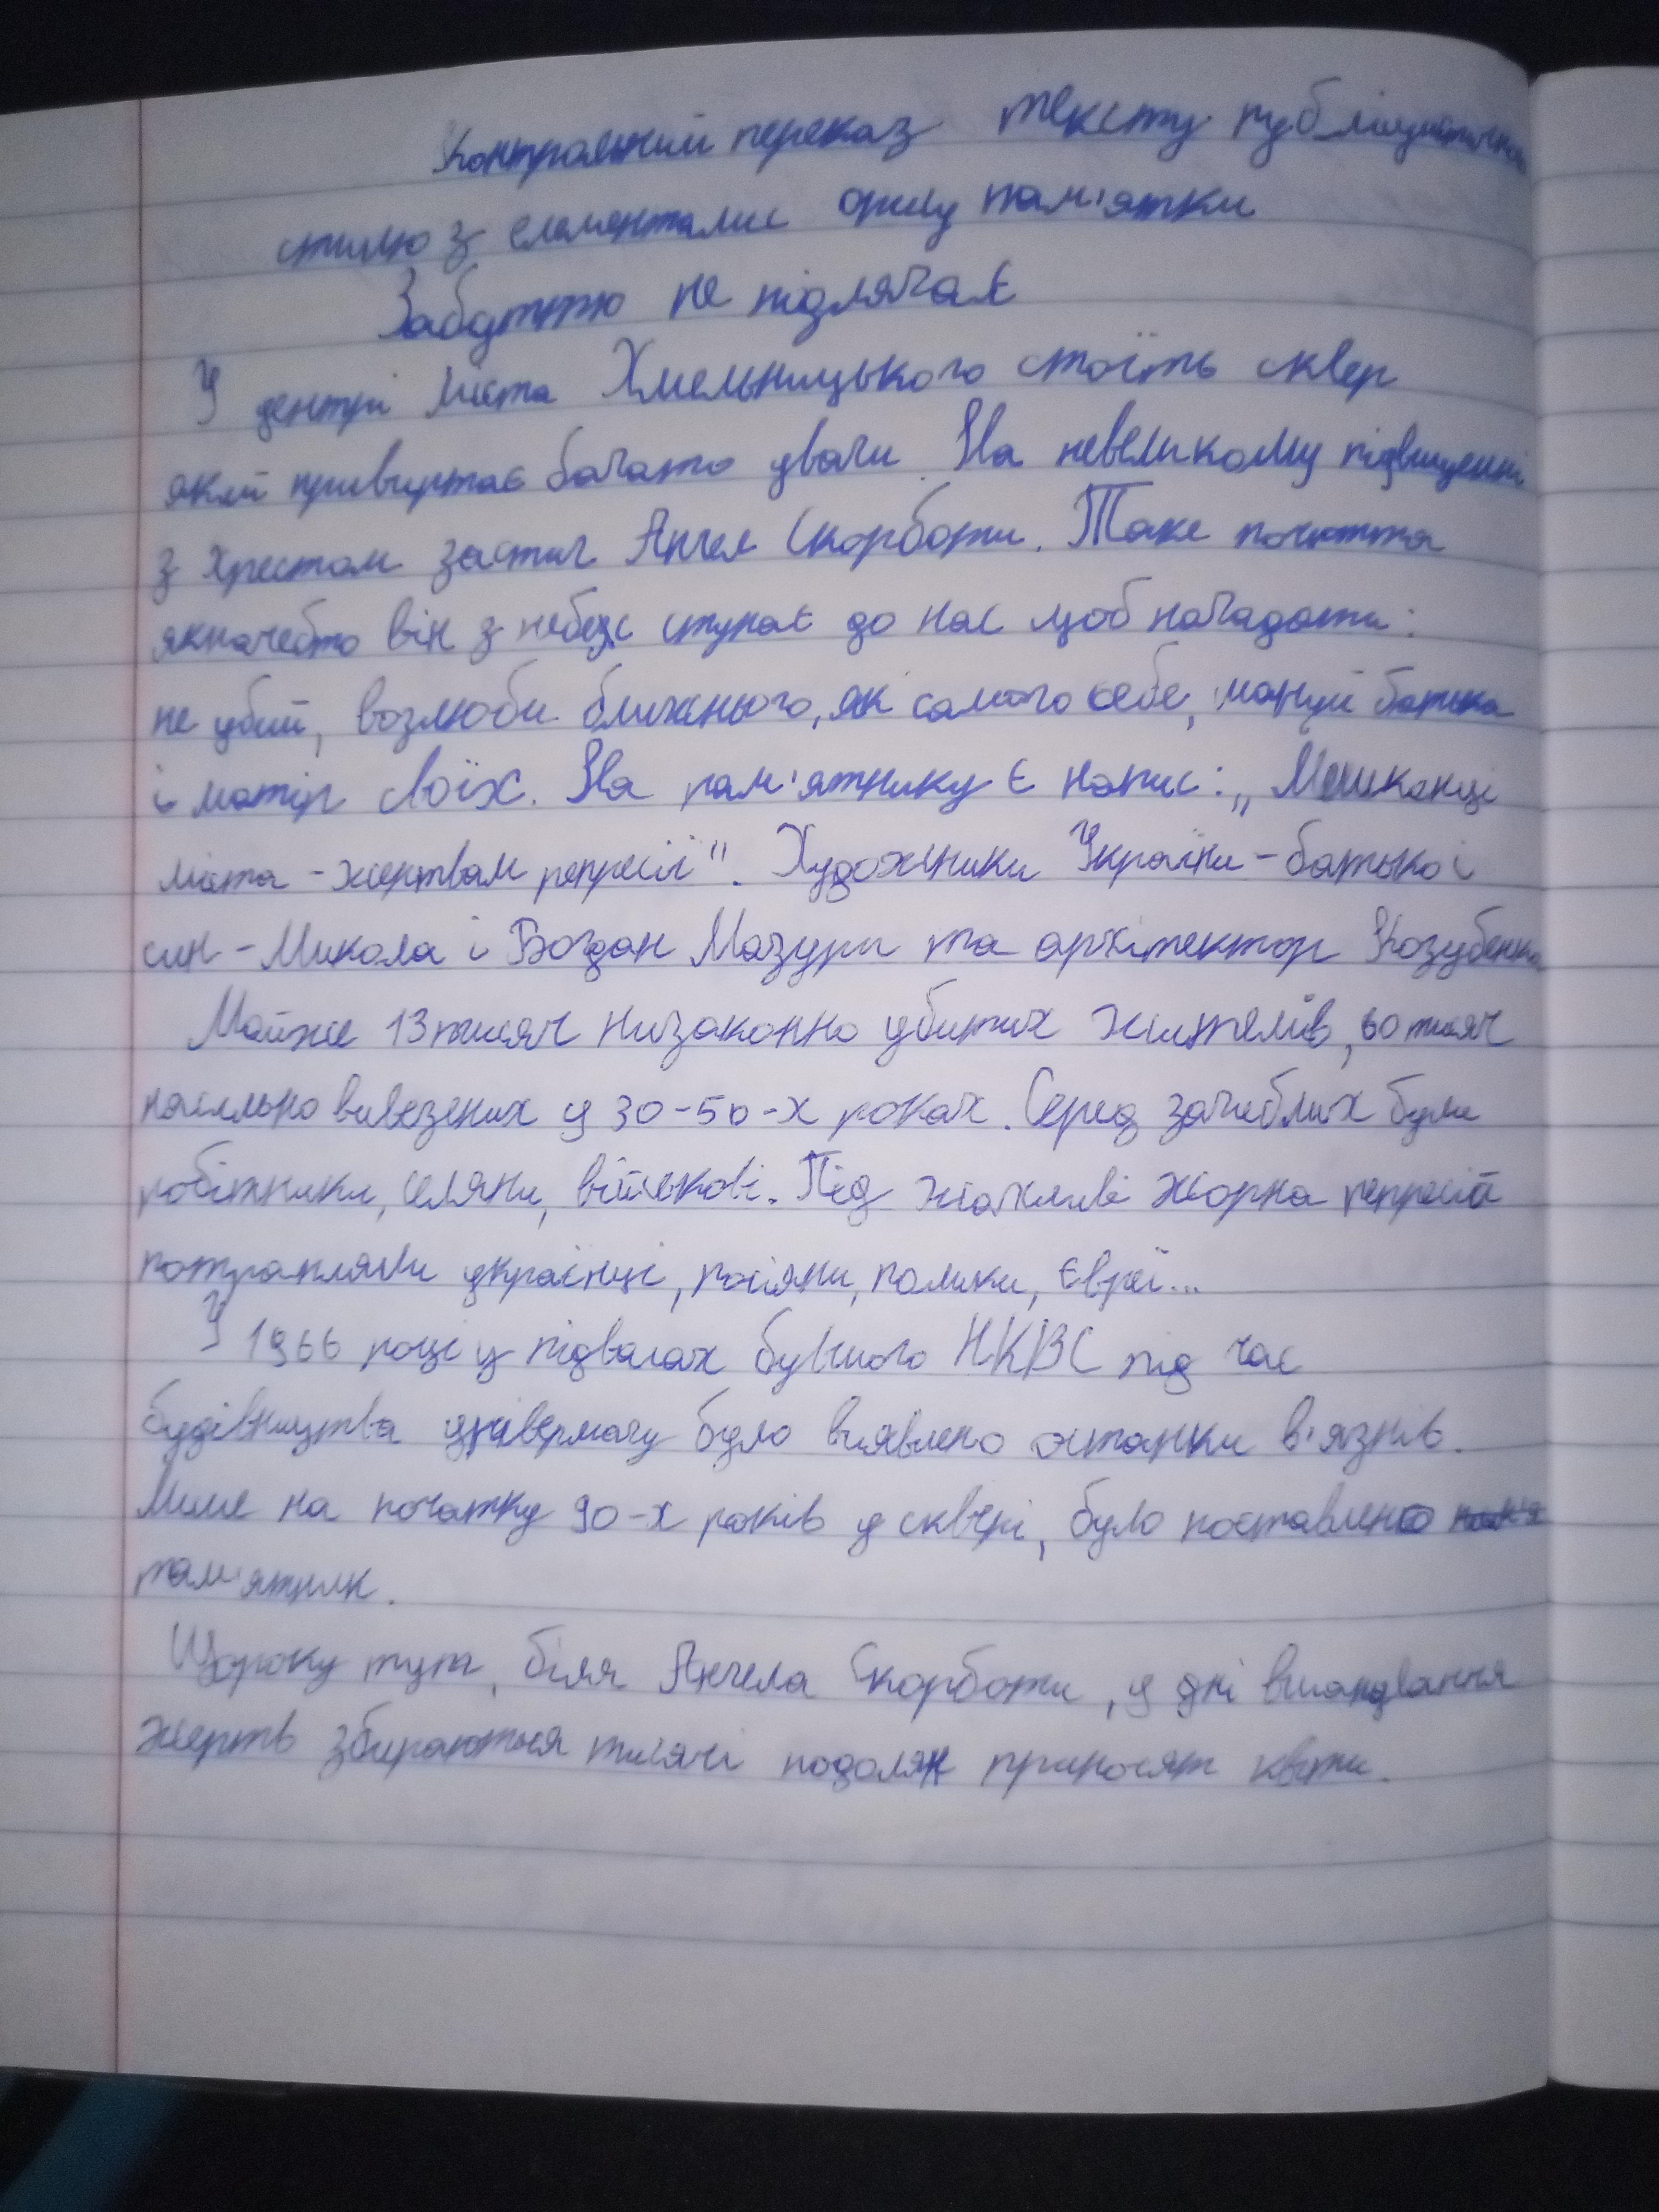 Контрольний переказ тексту публіцистичного
стилю з елементами опису пам'ятки
Забуттю не підлягає
У центрі міста Хмельницького стоїть сквер
який привертає багато уваги. На невеликому підвищенні
з хрестом застиг Ангел Скорботи. Таке почуття
якначебто він з небес ступає до нас щоб нагадати:
не убий, возлюби ближнього, як самого себе, шануй батька
і матір своїх. На пам'ятнику є напис: „Мешканці
міста - жертвам репресій". Художники України - батько і
син - Микола і Богдан Мазури та архітектор Козубенко
Майже 13 тисяч низаконно убитих жителів, 60 тисяч
насильно вивезених у 30-50-х роках. Серед загиблих були
робітники, селяни, військові. Під жахливі жорна репресій
потрапляли українці, росіяни, поляки, євреї...
У 1966 році у підвалах бувшого НКВС під час
будівництва універмагу було виявлено останки в'язнів.
Лише на початку 90-х років у сквері, було поставлено
пам'ятник.
Щороку тут, біля Ангела Скорботи, у дні вшанування
жертв збираються тисячі подолян приносят квіти.